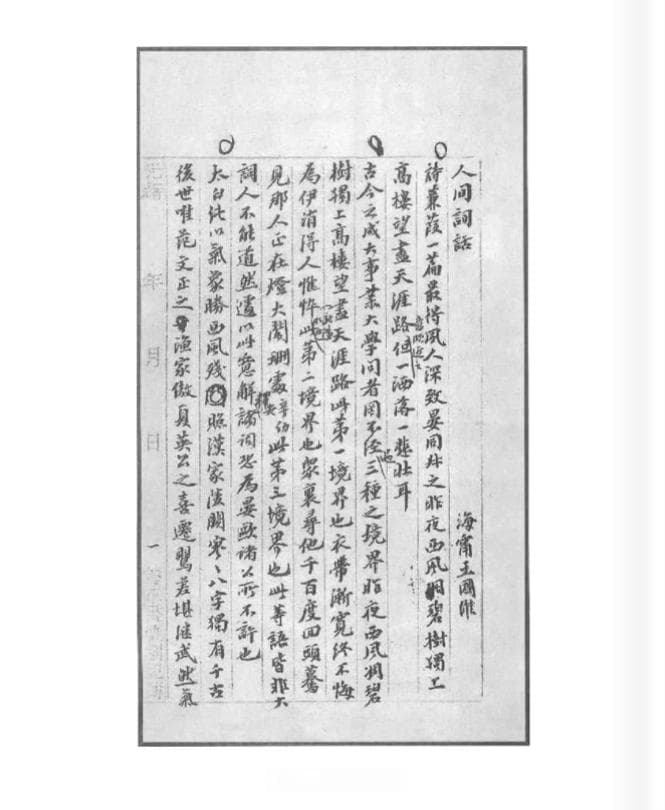 人间詞話 海甯王國維
詩蒹葭一篇最得風人深致晏同叔之昨夜西風凋碧樹獨上
意頗近之
高樓望盡天涯路但一洒落一悲壯耳
古今之成大事業大學問者罔不經三種之境界昨夜西風凋碧
樹獨上高樓望盡天涯路此第一境界也衣帶漸寬終不悔
為伊消得人憔悴此第二境界也眾裏尋他千百度回頭驀
見那人正在燈火闌珊處辛幼安此第三境界也此等語皆非大
詞人不能道然遽以此意解諸詞恐為晏歐諸公所不許也
太白純以氣象勝西風殘照漢家陵闕寥、八字獨有千古
後世唯范文正之漁家傲夏英公之喜遷鶯差堪繼武然氣
年 月 日 一